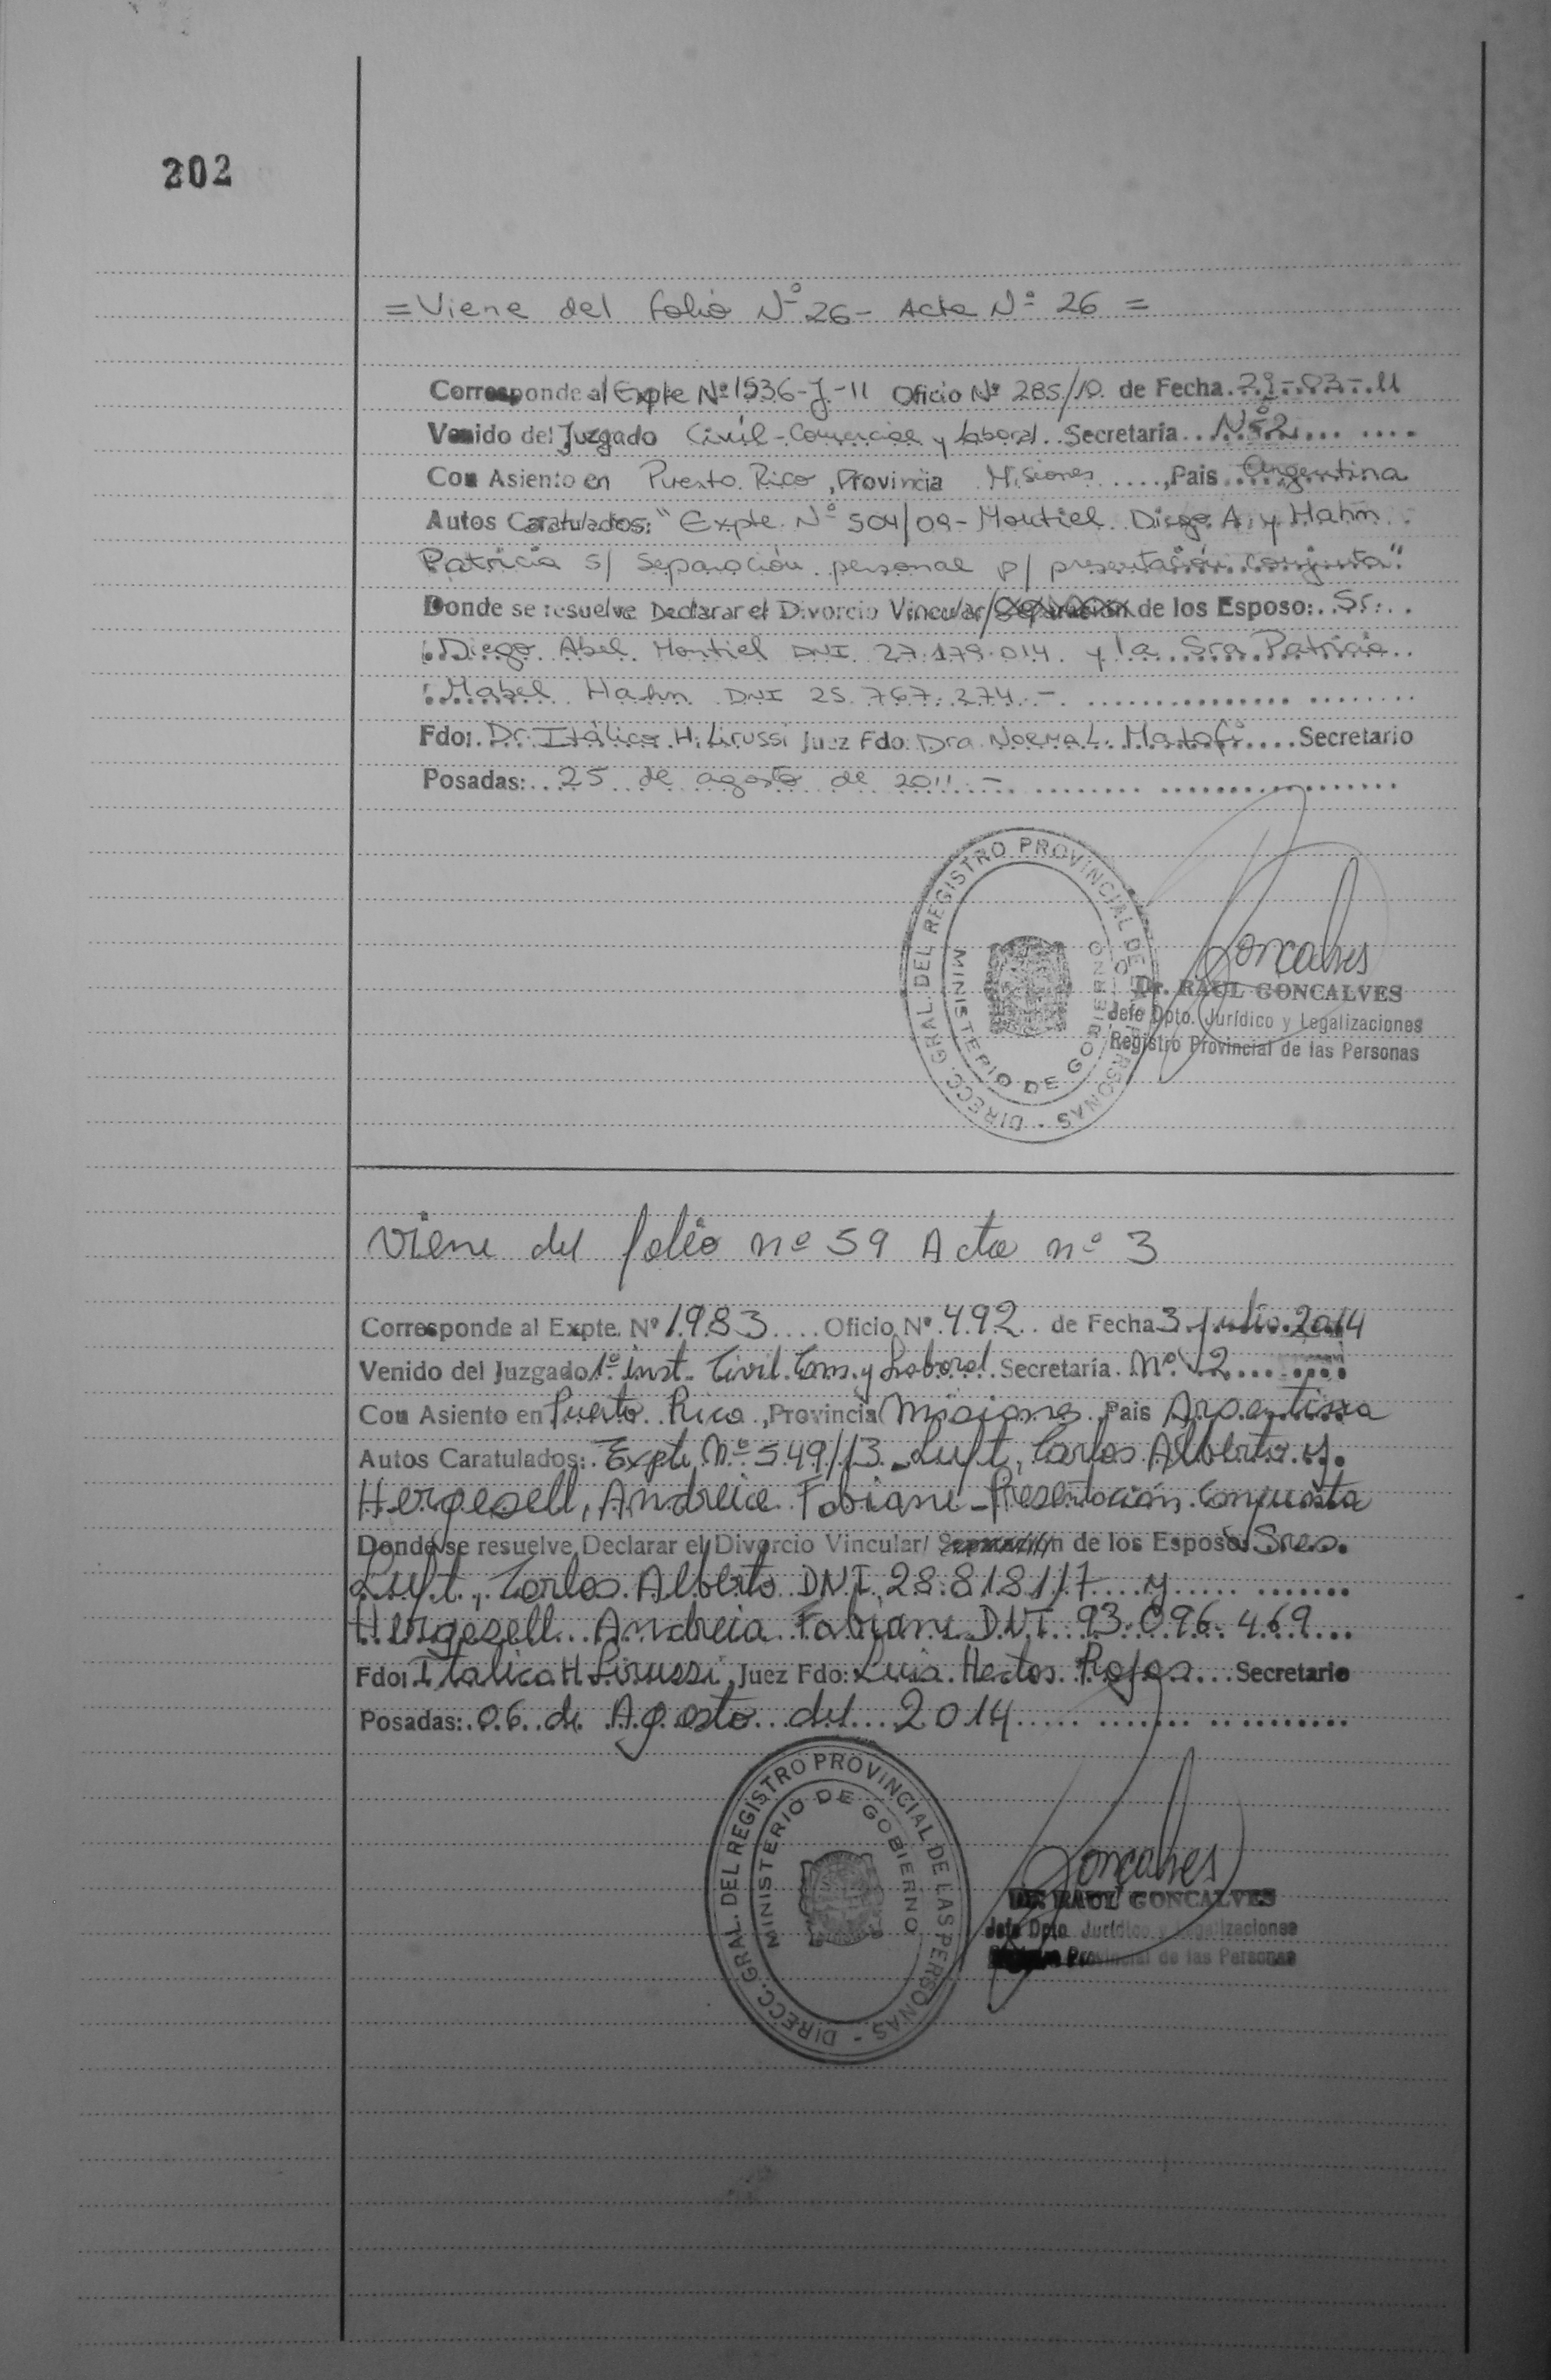 202
= Viene del folio Nº 26 - Acta Nº 26 =
Corresponde al Expte Nº 1536-J-11 Oficio Nº 285/10 de Fecha 29-03-11
Venido del Juzgado Civil-Comercial y Laboral. Secretaría Nº 2
Con Asiento en Puerto Rico, Provincia Misiones, Pais Argentina
Autos Caratulados: "Expte. Nº 504/09 - Montiel Diego A. y Hahn
Patricia s/ Separación personal p/ presentación conjunta"
Donde se resuelve Declarar el Divorcio Vincular/Separación de los Esposo: Sr.
Diego Abel Montiel DNI 27.179.014 y la Sra Patricia
Mabel Hahn DNI 25.767.274.-
Fdo: Dr. Itálico H. Lirussi Juez Fdo: Dra. Norma L. Secretario
Posadas: 25 de agosto de 2011.-
DIRECC. GRAL. DEL REGISTRO PROVINCIAL DE LAS PERSONAS -
MINISTERIO DE GOBIERNO
Goncalves
Dr. RAUL GONCALVES
Jefe Dpto. Jurídico y Legalizaciones
Registro Provincial de las Personas
Viene del folio nº 59 Acta nº 3
Corresponde al Expte. Nº 1983 Oficio Nº 492 de Fecha 3 julio 2014
Venido del Juzgado 1º inst. Civil. Com. y Laboral Secretaría. nº 2
Con Asiento en Puerto Rico, Provincia Misiones, Pais Argentina
Autos Caratulados: Expte Nº 549/13 - Luft, Carlos Alberto y
Hergesell, Andreia Fabiane - Presentación Conjunta
Donde se resuelve Declarar el Divorcio Vincular/ Separación de los Esposos Sres.
Luft, Carlos Alberto DNI 28.818.117 y
Hergesell Andreia Fabiane DNI 93.096.469
Fdo: Italico H. Lirussi, Juez Fdo: Luis Hector Rojas Secretario
Posadas: 06 de Agosto del 2014
DIRECC. GRAL. DEL REGISTRO PROVINCIAL DE LAS PERSONAS -
MINISTERIO DE GOBIERNO
Goncalves
DR. RAUL GONCALVES
Jefe Dpto. Jurídico y Legalizaciones
Provincial de las Personas